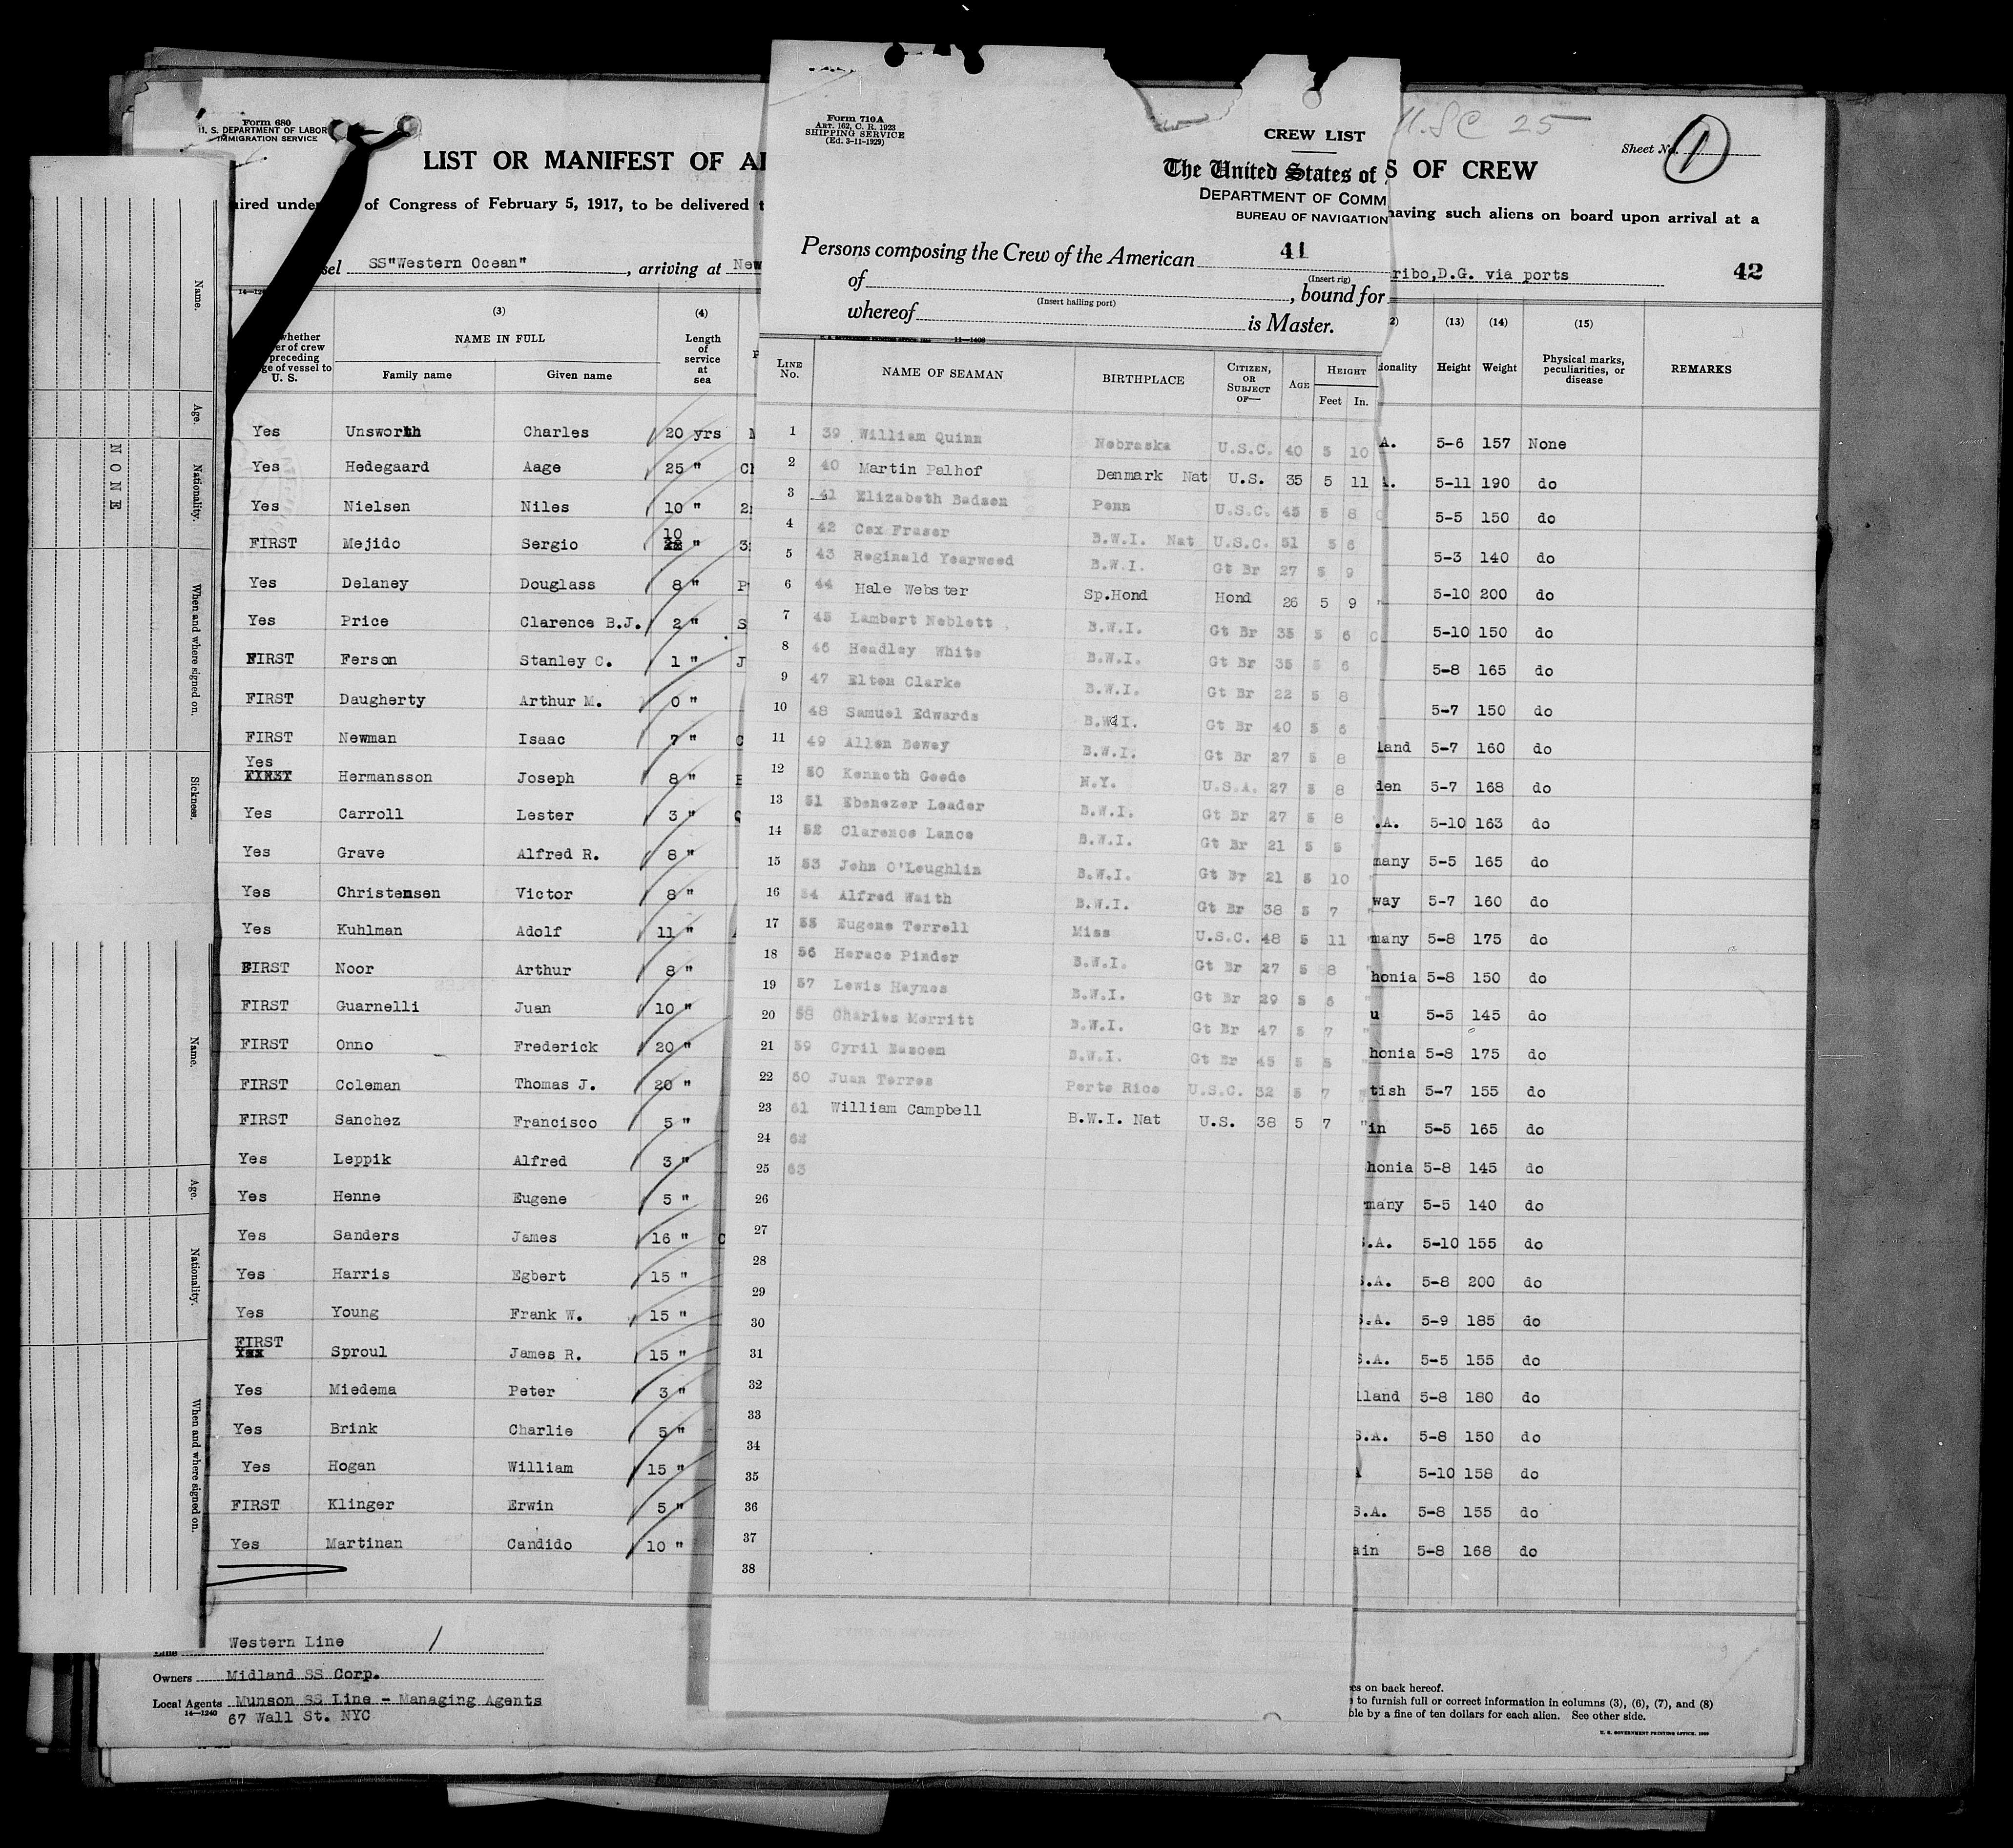 Form 680
U. S. DEPARTMENT OF LABOR
IMMIGRATION SERVICE
LIST OR MANIFEST OF
of Congress of February 5, 1917, to be delivered
SS"Western Ocean" , arriving at New
(3) (4)
whether
preceding
U. S.
NAME IN FULL
Family name Given name
Length
of
service
at
sea
Yes Unsworth Charles 20 yrs
Yes Hedegaard Aage 25 "
Yes Nielsen Niles 10 "
FIRST Mejido Sergio 10 "
Yes Delaney Douglass 8 "
Yes Price Clarence B.J. 2 "
FIRST Ferson Stanley C. 1 "
FIRST Daugherty Arthur M. 0 "
FIRST Newman Isaac 7 "
Yes
FIRST Hermansson Joseph 8 "
Yes Carroll Lester 3 "
Yes Grave Alfred R. 8 "
Yes Christensen Victor 8 "
Yes Kuhlman Adolf 11 "
FIRST Noor Arthur 8 "
FIRST Guarnelli Juan 10 "
FIRST Onno Frederick 20 "
FIRST Coleman Thomas J. 20 "
FIRST Sanchez Francisco 5 "
Yes Leppik Alfred 3 "
Yes Henne Eugene 5 "
Yes Sanders James 16 "
Yes Harris Egbert 15 "
Yes Young Frank W. 15 "
FIRST
Yes Sproul James R. 15 "
Yes Miedema Peter 3 "
Yes Brink Charlie 5 "
Yes Hogan William 15 "
FIRST Klinger Erwin 5 "
Yes Martinan Candido 10 "
Line Western Line
Owners Midland SS Corp.
Local Agents Munson SS Line - Managing Agents
14—1240 67 Wall St. NYC
Name.
Age.
Nationality.
When and where signed on.
Sickness.
NONE
Name.
Age.
Nationality.
When and where signed on.
Form 710A
ART. 162, C. R. 1923
SHIPPING SERVICE
(Ed. 3-11-1929)
CREW LIST
The United States of
DEPARTMENT OF COMM
BUREAU OF NAVIGATION
Persons composing the Crew of the American 41
(Insert rig)
of , bound for
(Insert hailing port)
whereof is Master.
11—1408
LINE No. NAME OF SEAMAN BIRTHPLACE CITIZEN, OR SUBJECT OF— AGE HEIGHT Feet In.
1 39 William Quinn Nebraska U.S.C. 40 5 10
2 40 Martin Palhof Denmark Nat U.S. 35 5 11
3 41 Elizabeth Badsen Penn U.S.C. 45 5 8
4 42 Cex Fraser B.W.I. Nat U.S.C. 51 5 6
5 43 Reginald Yearwood B.W.I. Gt Br 27 5 9
6 44 Hale Webster Sp.Hond Hond 26 5 9
7 45 Lambert Noblett B.W.I. Gt Br 35 5 6
8 46 Headley White B.W.I. Gt Br 35 5 6
9 47 Elton Clarke B.W.I. Gt Br 22 5 8
10 48 Samuel Edwards B.W.I. Gt Br 40 5 6
11 49 Allen Dewey B.W.I. Gt Br 27 5 8
12 50 Kenneth Goode N.Y. U.S.A. 27 5 8
13 51 Ebenezer Leader B.W.I. Gt Br 27 5 8
14 52 Clarence Lance B.W.I. Gt Br 21 5 5
15 53 John O'Loughlin B.W.I. Gt Br 21 5 10
16 54 Alfred Waith B.W.I. Gt Br 38 5 7
17 55 Eugene Terrell Miss U.S.C. 48 5 11
18 56 Horace Pinder B.W.I. Gt Br 27 5 8
19 57 Lewis Haynes B.W.I. Gt Br 29 5 6
20 58 Charles Merritt B.W.I. Gt Br 47 5 7
21 59 Cyril Bascom B.W.I. Gt Br 45 5 5
22 60 Juan Torres Porto Rico U.S.C. 32 5 7
23 61 William Campbell B.W.I. Nat U.S. 38 5 7
24 62
25 63
26
27
28
29
30
31
32
33
34
35
36
37
38
U.S.C 25
Sheet No. 1
S OF CREW
having such aliens on board upon arrival at a
ribo,D.G. via ports 42
(13) (14) (15)
Height Weight Physical marks, peculiarities, or disease REMARKS
A. 5-6 157 None
5-11 190 do
5-5 150 do
5-3 140 do
5-10 200 do
5-10 150 do
5-8 165 do
5-7 150 do
land 5-7 160 do
den 5-7 168 do
.A. 5-10 163 do
many 5-5 165 do
way 5-7 160 do
many 5-8 175 do
honia 5-8 150 do
u 5-5 145 do
honia 5-8 175 do
tish 5-7 155 do
in 5-5 165 do
honia 5-8 145 do
many 5-5 140 do
.A. 5-10 155 do
.A. 5-8 200 do
.A. 5-9 185 do
S.A. 5-5 155 do
lland 5-8 180 do
S.A. 5-8 150 do
5-10 158 do
S.A. 5-8 155 do
ain 5-8 168 do
es on back hereof.
to furnish full or correct information in columns (3), (6), (7), and (8)
ble by a fine of ten dollars for each alien. See other side.
U. S. GOVERNMENT PRINTING OFFICE